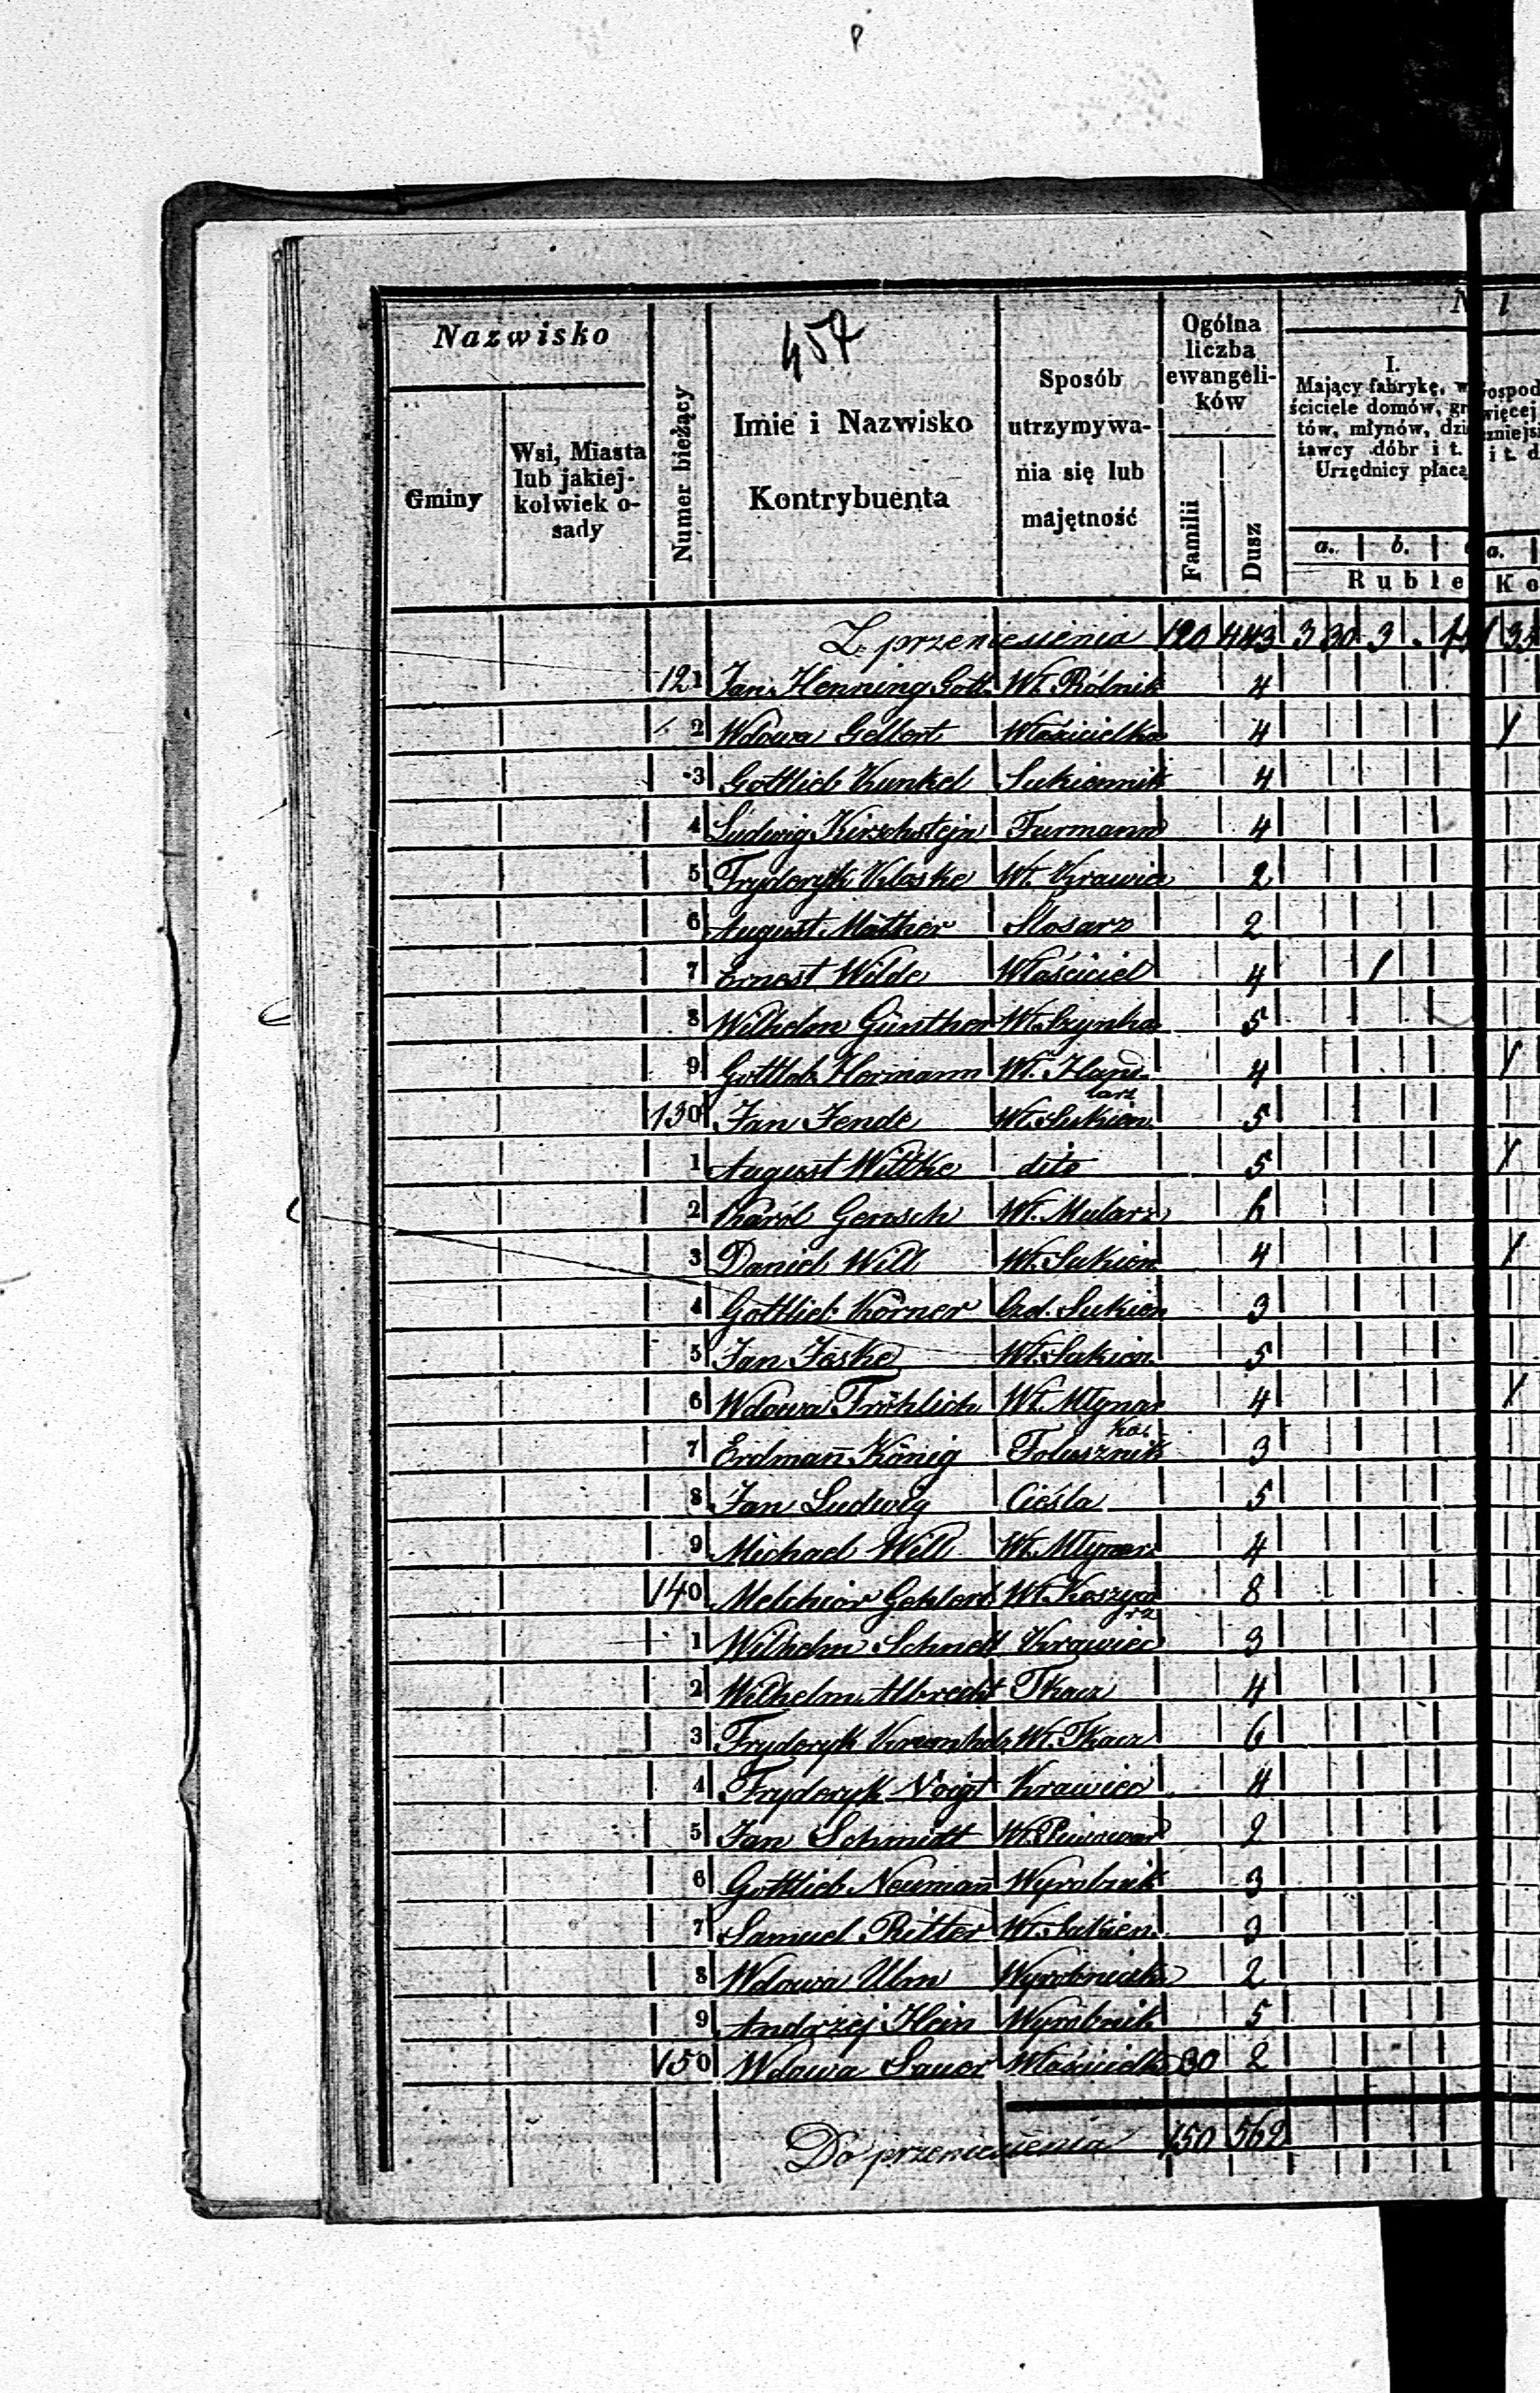 Nazwisko
Gminy
Wsi, Miasta
lub jakiej-
kolwiek o-
sady
Numer bieżący
457
Imie i Nazwisko
Kontrybuenta
Sposób
utrzymywa-
nia się lub
majętność
Ogólna
liczba
ewangeli-
ków
Familii
Dusz
I.
Mający fabrykę, w
ściciele domów, gr
tów, młynów, dzi
żawcy dóbr i t.
Urzędnicy płacą
a. b.
Ruble
a.
Ko
Z przeniesienia 120 443 3 30 3
121 Jan Henning Gott. Wł. Rólnik 4
2 Wdowa Gellert Właścicielka 4 /
3 Gottlieb Kunkel Sukiennik 4
4 Ludwig Kirschstejn Furmann 4
5 Fryderyk Klaske Wł. Krawiec 2
6 August Mather Slosarz 2
7 Ernest Wilde Właściciel 4 /
8 Wilhelm Günther Wł. Szynka 5
9 Gottlob Hermann Wł. Handlarz 4 /
130 Jan Jende Wł. Sukien. 5
1 August Wittke dito 5 /
2 Karól Gensch Wł. Mularz 6
3 Daniel Will Wł. Sukien 4 /
4 Gottlieb Körner Czel. Sukien 3
5 Jan Jeske Wł. Sukien. 5
6 Wdowa Fröhlich Wł. Młynarka 4 /
7 Erdmañ König Folusznik 3
8 Jan Ludwig Cieśla 5
9 Michael Will Wł. Młynarz 4
140 Melchior Gehlert Wł. Koszyarz 8
1 Wilhelm Schnell Krawiec 3
2 Wilhelm Albrecht Tkacz 4
3 Fryderyk Krumholz Wł. Tkacz 6
4 Fryderyk Voigt Krawiec 4
5 Jan Schmidt Wł. Piwowar 2
6 Gottlieb Neumañ Wyrobnik 3
7 Samuel Ritter Wł. Sukien. 3
8 Wdowa Ulm Wyrobnicka 2
9 Andrzej Hein Wyrobnik 5
150 Wdowa Sauer Właścicielk 30 2
Do przeniesienia 150 562